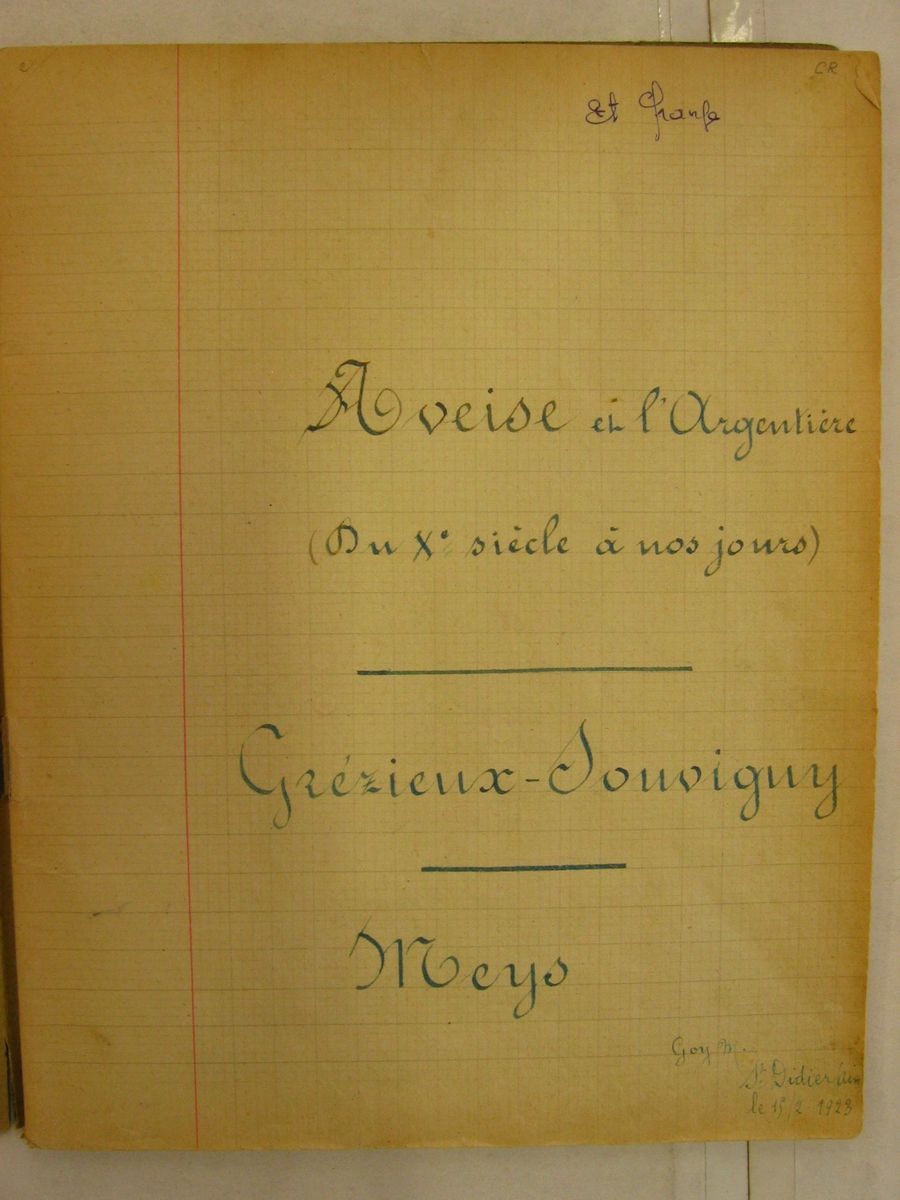 CR
Et
Aveise et l'Argentière
(Du Xe siècle à nos jours)
Grézieux-Souvigny
Meys
Goy M.
St Didier
le 15/2 1923